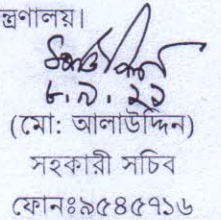 ন্ত্রণালয়।
৮.৯.২১
(মো: আলাউদ্দিন)
সহকারী সচিব
ফোনঃ৯৫৪৫৭১৬